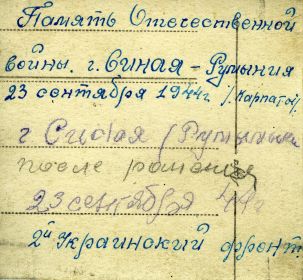 Память Отечественной
войны. г. Синая - Румыния
23 сентября 1944г. /Карпаты/.
г Синая (Румыния
после ранения
23 сентября 44г
2й Украинский фронт.